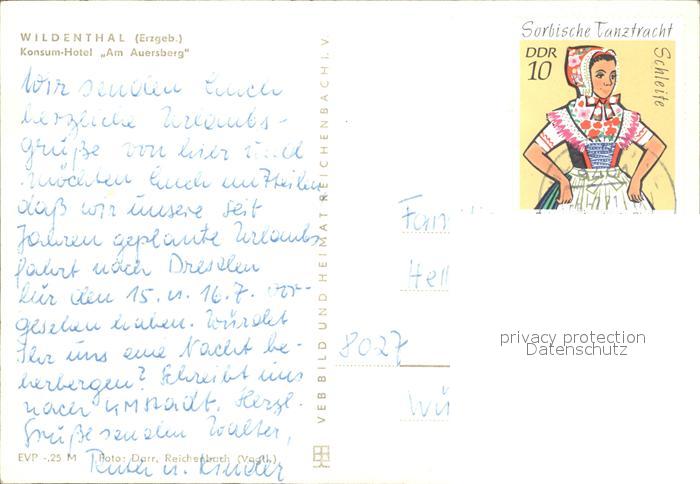 WILDENTHAL (Erzgeb.)
Konsum-Hotel „Am Auersberg"
Wir senden Euch
herzliche Urlaubs-
grüße von hier und
möchten Euch mitteilen
daß wir unsere seit
Jahren geplante Urlaubs-
fahrt nach Dresden
für den 15. u. 16.7. vor-
gesehen haben. Würdet
Ihr uns eine Nacht be-
herbergen? Schreibt uns
nach KMStadt. Herzl.
Grüße senden Walter,
Ruth u. Kinder
EVP -,25 M Foto: Darr, Reichenbach (Vogtl.)
VEB BILD UND HEIMAT REICHENBACH I. V.
Sorbische Tanztracht
DDR
10
Schleife
Fam
Hell
8027
Wü
privacy protection
Datenschutz